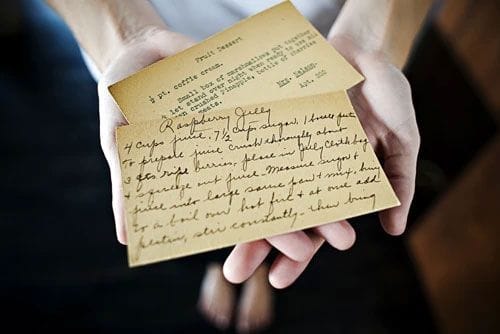 Fruit Dessert
½ pt. coffie cream.
Small box of marshmallows Put together
let stand over night when ready to use add
can crushed Pineapple, bottle of cherries
meats.
Mrs. Nelson-
Apt. 200
Raspberry Jelly
4 cups juice, 7½ cups sugar, 1 bottle
to prepare juice crush thoroughly about
3 qts ripe berries, place in Jelly cloth bag
& squeeze out juice. Measure sugar &
juice into large sauce pan & mix, bring
to a boil over hot fire & at once add
pectin, stir constantly - then bring